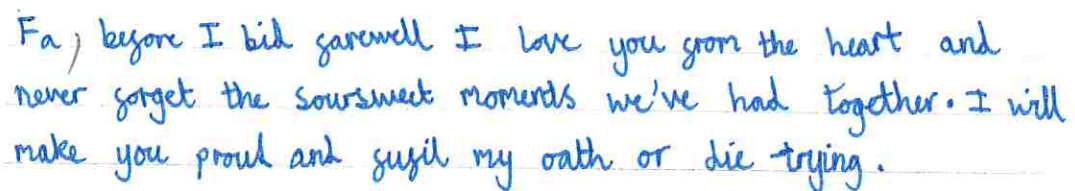 Fa, before I bid farewell I love you from the heart and
never forget the soursweet moments we've had together. I will
make you proud and fulfil my oath or die trying.